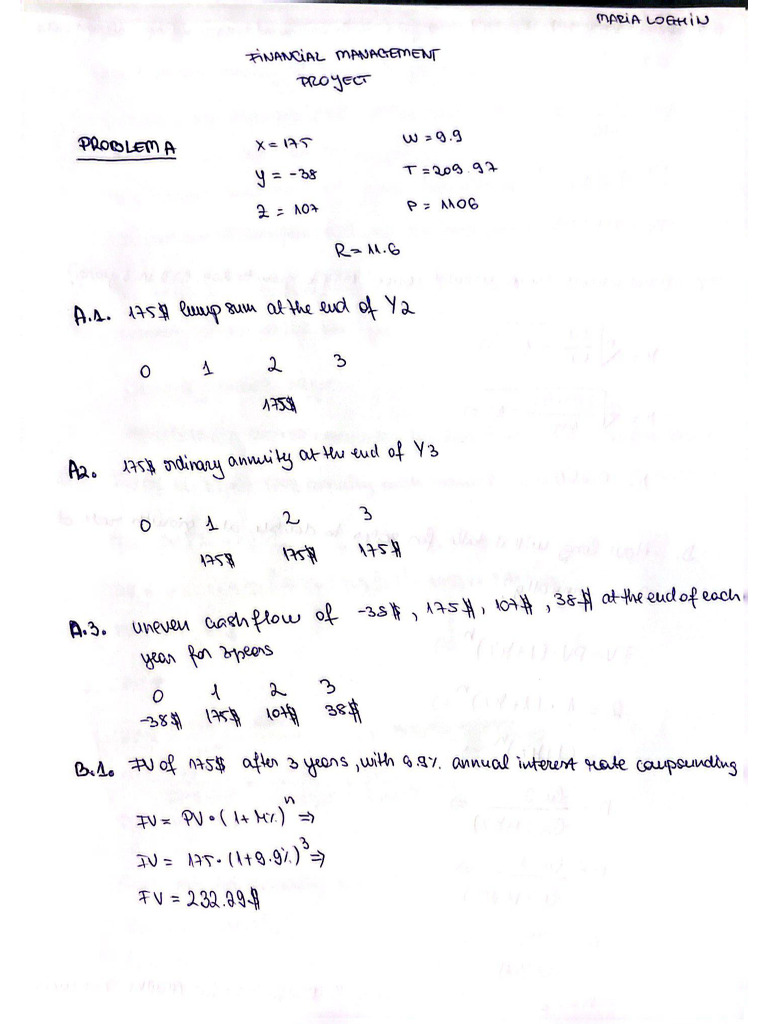 MARIA LOGHIN
FINANCIAL MANAGEMENT
PROYECT
PROBLEM A
X = 175
W = 9.9
Y = -38
T = 209.97
Z = 107
P = 1106
R = 11.6
A.1. 175$ lump sum at the end of Y2
0 1 2 3
175$
A2. 175$ ordinary annuity at the end of Y3
0 1 2 3
175$ 175$ 175$
A.3. uneven cashflow of -38$, 175$, 107$, 38$ at the end of each
year for 3 years
0 1 2 3
-38$ 175$ 107$ 38$
B.1. FV of 175$ after 3 years, with 9.9% annual interest rate compounding
FV = PV • (1 + r%)^n ⇒
FV = 175 • (1 + 9.9%)^3 ⇒
FV = 232.29$